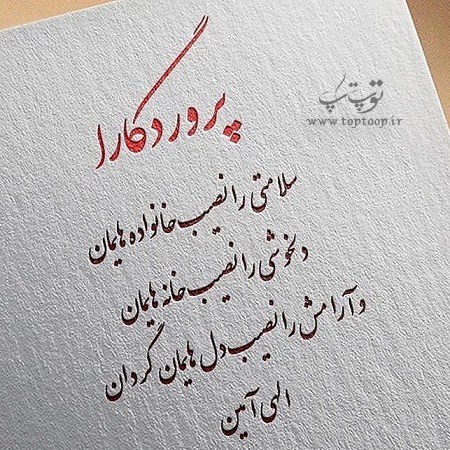 پروردگارا
توپ تاپ
www.toptoop.ir
سلامتی را نصیب خانواده هایمان
دلخوشی را نصیب خانه هایمان
و آرامش را نصیب دل هایمان گردان
الهی آمین